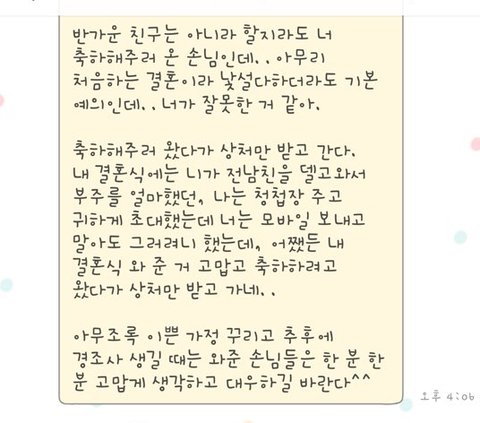 반가운 친구는 아니라 할지라도 너
축하해주러 온 손님인데.. 아무리
처음하는 결혼이라 낯설다하더라도 기본
예의인데.. 너가 잘못한 거 같아.
축하해주러 왔다가 상처만 받고 간다.
내 결혼식에는 니가 전남친을 델고와서
부주를 얼마했던, 나는 청첩장 주고
귀하게 초대했는데 너는 모바일 보내고
말아도 그러려니 했는데, 어쨌든 내
결혼식 와 준 거 고맙고 축하하려고
왔다가 상처만 받고 가네..
아무조록 이쁜 가정 꾸리고 추후에
경조사 생길 때는 와준 손님들은 한 분 한
분 고맙게 생각하고 대우하길 바란다^^
오후 4:06